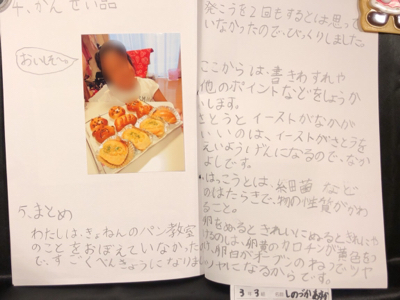 4.かんせい品
おいしそ〜
5.まとめ
わたしは、きょねんのパン教室
のことをおぼえていなかった
で、すごくべんきょうになりま
発こうを2回もするとは思って
いなかったので、びっくりしました
ここからは、書きわすれや
他のポイントなどをしょうか
いします。
さとうとイーストがなかが
いいのは、イーストがさとうを
えいようげんになるので、なか
よしです。
は、細菌など
のはたらきで、物の性質がかわ
ること。
卵をぬるときれいにぬると
のは、卵黄のカロチンが黄色をつ
卵白がオーブンのねつでツヤ
になるからです。
3年3組